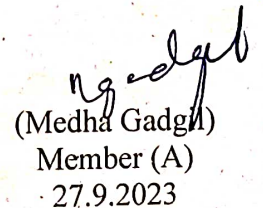 (Medha Gadgil)
Member (A)
27.9.2023